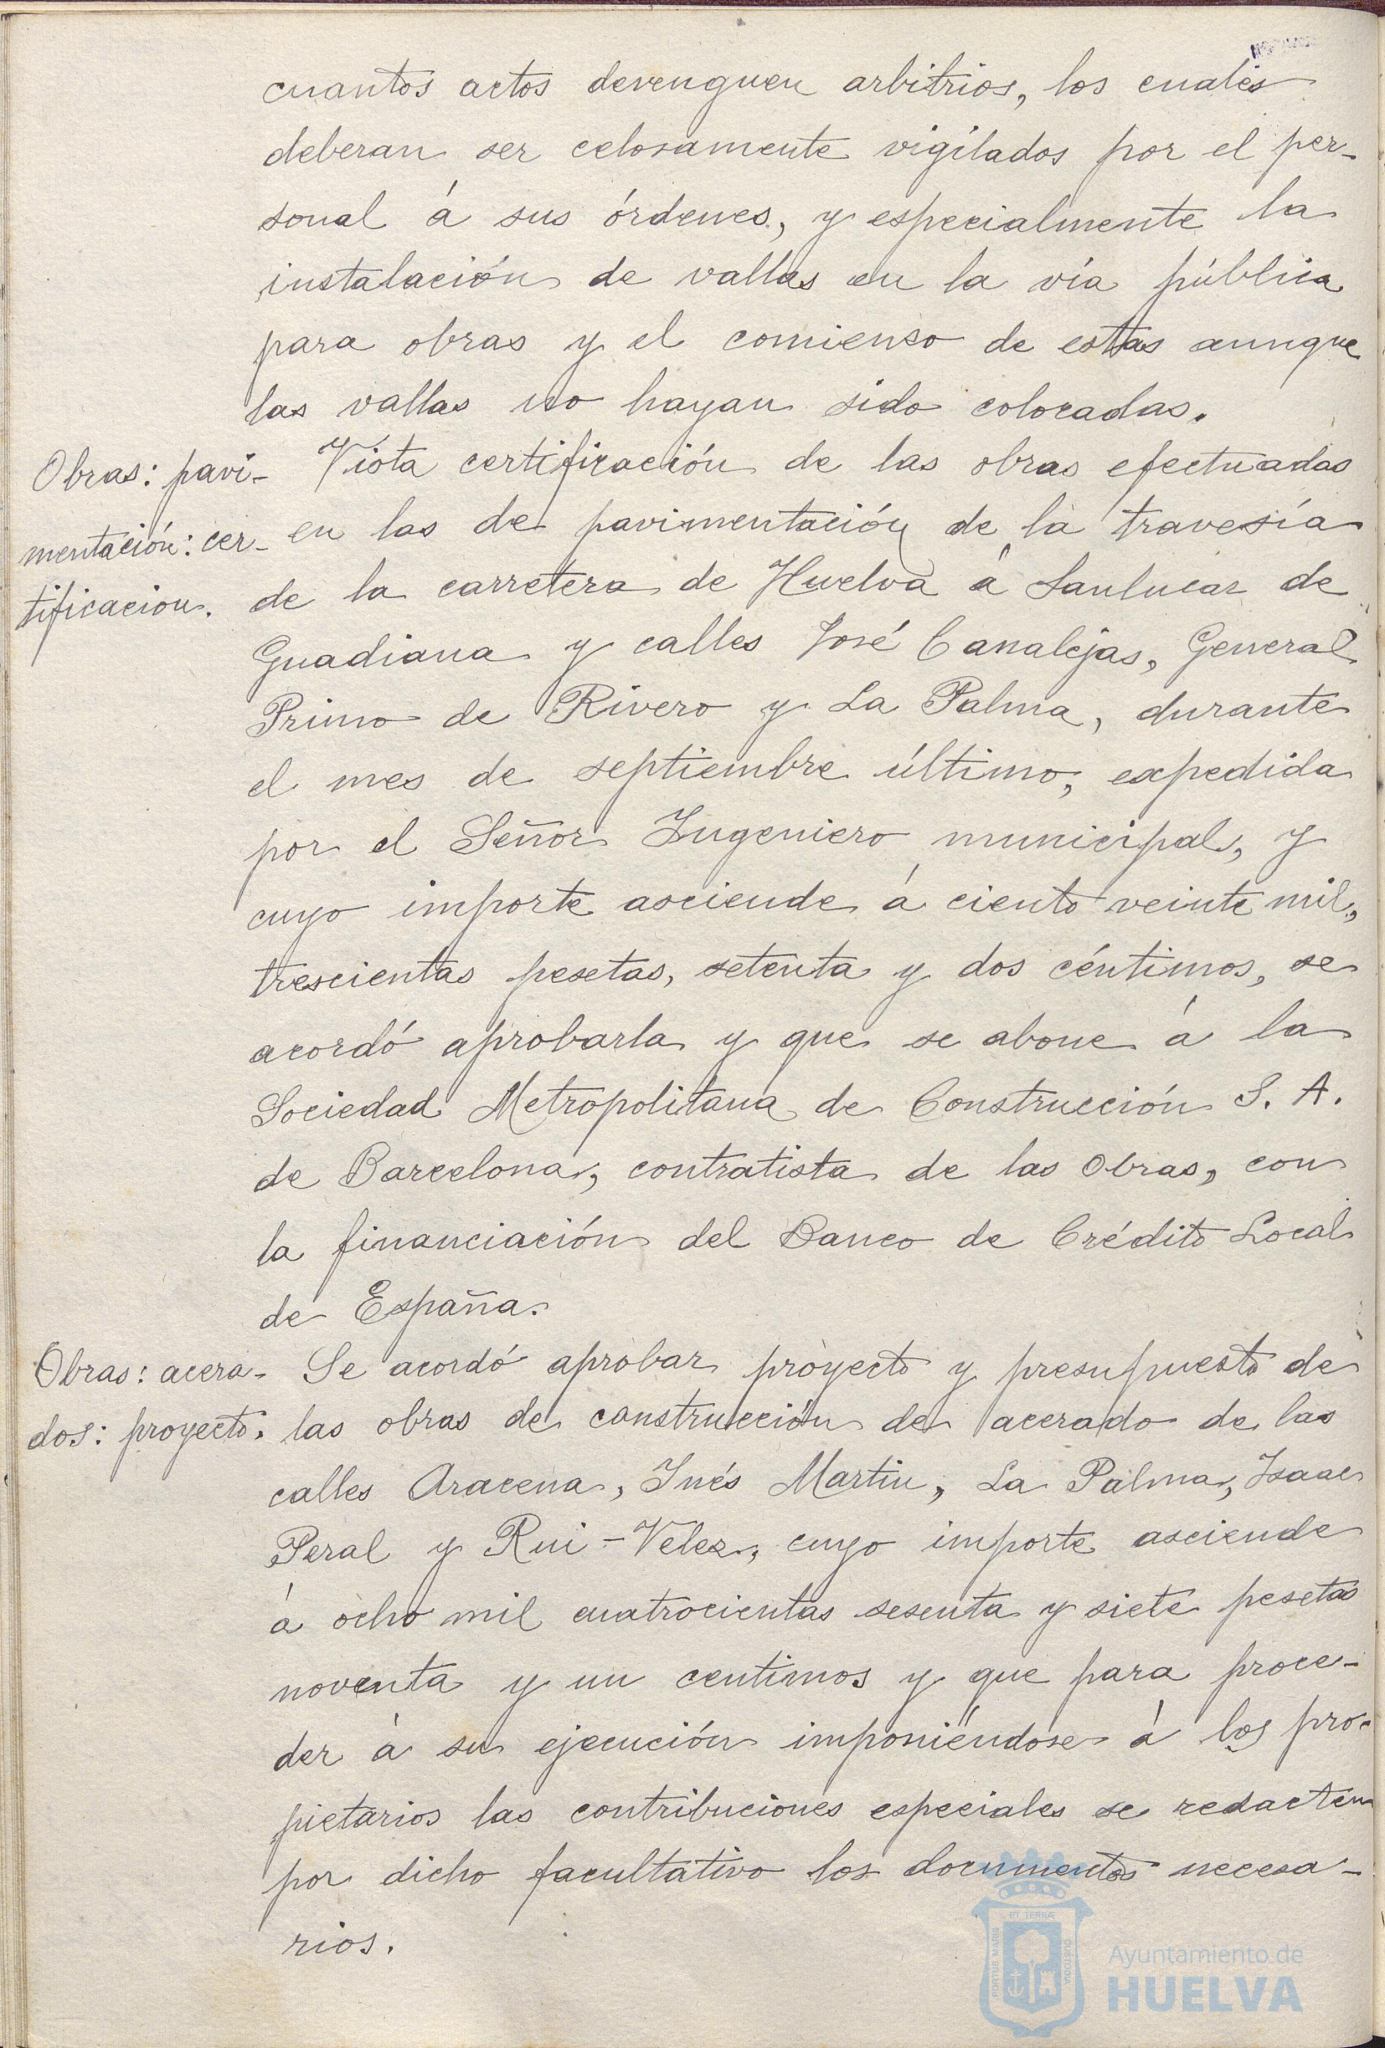 cuantos actos devenguen arbitrios, los cuales
deberan ser celosamente vigilados por el per-
sonal á sus órdenes, y especialmente la
instalación de vallas en la vía pública
para obras y el comienso de estas aunque
las vallas no hayan sido colocadas.
Obras: pavi-
mentación: cer-
tificacion.
Vista certificación de las obras efectuadas
en las de pavimentación de la travesía
de la carretera de Huelva á Sanlucar de
Guadiana y calles José Canalejas, General
Primo de Rivero y La Palma, durante
el mes de septiembre último, expedida
por el Señor Ingeniero municipal, y
cuyo importe asciende á ciento veinte mil,
trescientas pesetas, setenta y dos céntimos, se
acordó aprobarla y que se abone á la
Sociedad Metropolitana de Construcción S. A.
de Barcelona, contratista de las obras, con
la financiación del Banco de Crédito Local
de España.
Obras: acera-
dos: proyecto.
Se acordó aprobar proyecto y presupuesto de
las obras de construcción de acerado de las
calles Aracena, Inés Martin, La Palma, Isaac
Peral y Rui-Velez, cuyo importe asciende
á ocho mil cuatrocientas sesenta y siete pesetas
noventa y un centimos y que para proce-
der á su ejecución imponiéndose á los pro-
pietarios las contribuciones especiales se redacten
por dicho facultativo los documentos necesa-
rios.
PORTUS MARIS
ET TERRÆ
CUSTODIA
Ayuntamiento de
HUELVA